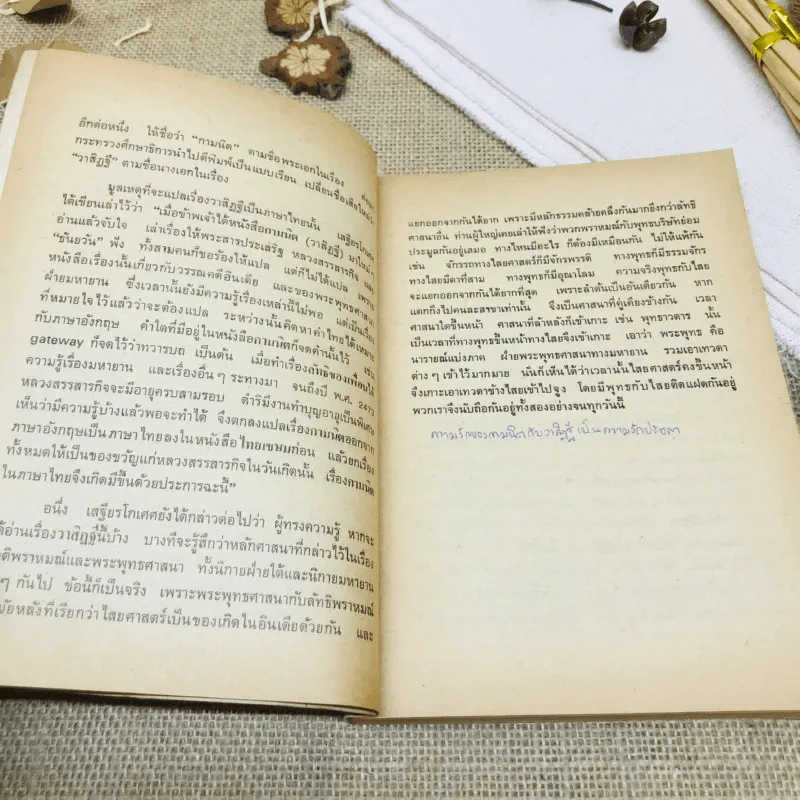 อีกต่อหนึ่ง ให้ชื่อว่า "กามนิต" ตามชื่อพระเอกในเรื่อง
กระทรวงศึกษาธิการนำไปตีพิมพ์เป็นแบบเรียน เปลี่ยนชื่อเสียใหม่ว่า
"วาสิฏฐี" ตามชื่อนางเอกในเรื่อง
มูลเหตุที่จะแปลเรื่องวาสิฏฐีเป็นภาษาไทยนั้น เสฐียรโกเศศ
ได้เขียนเล่าไว้ว่า "เมื่อข้าพเจ้าได้หนังสือกามนิต (วาสิฏฐี) มาใหม่
อ่านแล้วจับใจ เล่าเรื่องให้พระสารประเสริฐ หลวงสรรสารกิจ และ
"ธันยวัน" ฟัง ทั้งสามคนก็ขอร้องให้แปล แต่ก็ไม่ได้แปล เพราะ
หนังสือเรื่องนั้นเกี่ยวกับวรรณคดีอินเดีย และของพระพุทธศาสนา
ฝ่ายมหายาน ซึ่งเวลานั้นยังมีความรู้เรื่องเหล่านี้ไม่พอ แต่เป็นเรื่อง
ที่หมายใจไว้แล้วว่าจะต้องแปล ระหว่างนั้นคิดหาคำไทยให้เหมาะ
กับภาษาอังกฤษ คำใดที่มีอยู่ในหนังสือกามนิตก็จดคำนั้นไว้ เช่น
gateway ก็จดไว้ว่าทวารบถ เป็นต้น เมื่อทำเรื่องลัทธิของเพื่อนได้
ความรู้เรื่องมหายาน และเรื่องอื่นๆ ระทางมา จนถึงปี พ.ศ. 2473
หลวงสรรสารกิจจะมีอายุครบสามรอบ ดำริมีงานทำบุญอายุเป็นพิเศษ
เห็นว่ามีความรู้บ้างแล้วพอจะทำได้ จึงตกลงแปลเรื่องกามนิตออกจาก
ภาษาอังกฤษเป็นภาษาไทยลงในหนังสือไทยเขษมก่อน แล้วยกเรื่อง
ทั้งหมดให้เป็นของขวัญแก่หลวงสรรสารกิจในวันเกิดนั้น เรื่องกามนิต
ในภาษาไทยจึงเกิดมีขึ้นด้วยประการฉะนี้"
อนึ่ง เสฐียรโกเศศยังได้กล่าวต่อไปว่า ผู้ทรงความรู้ หากจะ
ได้อ่านเรื่องวาสิฏฐีนี้บ้าง บางทีจะรู้สึกว่าหลักศาสนาที่กล่าวไว้ในเรื่อง
ติพราหมณ์และพระพุทธศาสนา ทั้งนิกายฝ่ายใต้และนิกายมหายาน
ๆ กันไป ข้อนี้ก็เป็นจริง เพราะพระพุทธศาสนากับลัทธิพราหมณ์
มัยหลังที่เรียกว่าไสยศาสตร์เป็นของเกิดในอินเดียด้วยกัน และ
แยกออกจากกันได้ยาก เพราะมีหลักธรรมคล้ายคลึงกันมากยิ่งกว่าลัทธิ
ศาสนาอื่น ท่านผู้ใหญ่เคยเล่าให้ฟังว่าพวกพราหมณ์กับพุทธบริษัทย่อม
ประมูลกันอยู่เสมอ ทางไหนมีอะไร ก็ต้องมีเหมือนกัน ไม่ให้แพ้กัน
เช่น จักรรถทางไสยศาสตร์ก็มีจักรพรรดิ ทางพุทธก็มีธรรมจักร
ทางไสยมีตาที่สาม ทางพุทธก็มีอุณาโลม ความจริงพุทธกับไสย
จะแยกออกจากกันได้ยากที่สุด เพราะลำต้นเป็นอันเดียวกัน หาก
แตกกิ่งไปคนละสาขาเท่านั้น จึงเป็นศาสนาที่คู่เคียงข้างกัน เวลา
ศาสนาใดขึ้นหน้า ศาสนาที่ล้าหลังก็เข้าเกาะ เช่น พุทธาวตาร นั้น
เป็นเวลาที่ทางพุทธขึ้นหน้าทางไสยจึงเข้าเกาะ เอาว่า พระพุทธ คือ
นารายณ์แบ่งภาค ฝ่ายพระพุทธศาสนาทางมหายาน รวมเอาเทวดา
ต่างๆ เข้าไว้มากมาย นั่นก็เห็นได้ว่าเวลานั้นไสยศาสตร์คงขึ้นหน้า
จึงเกาะเอาเทวดาข้างไสยเข้าไปจูง โดยมีพุทธกับไสยติดแฝดกันอยู่
พวกเราจึงนับถือกันอยู่ทั้งสองอย่างจนทุกวันนี้
ความรักของกามนิตกับวาสิฏฐีเป็นความรัก